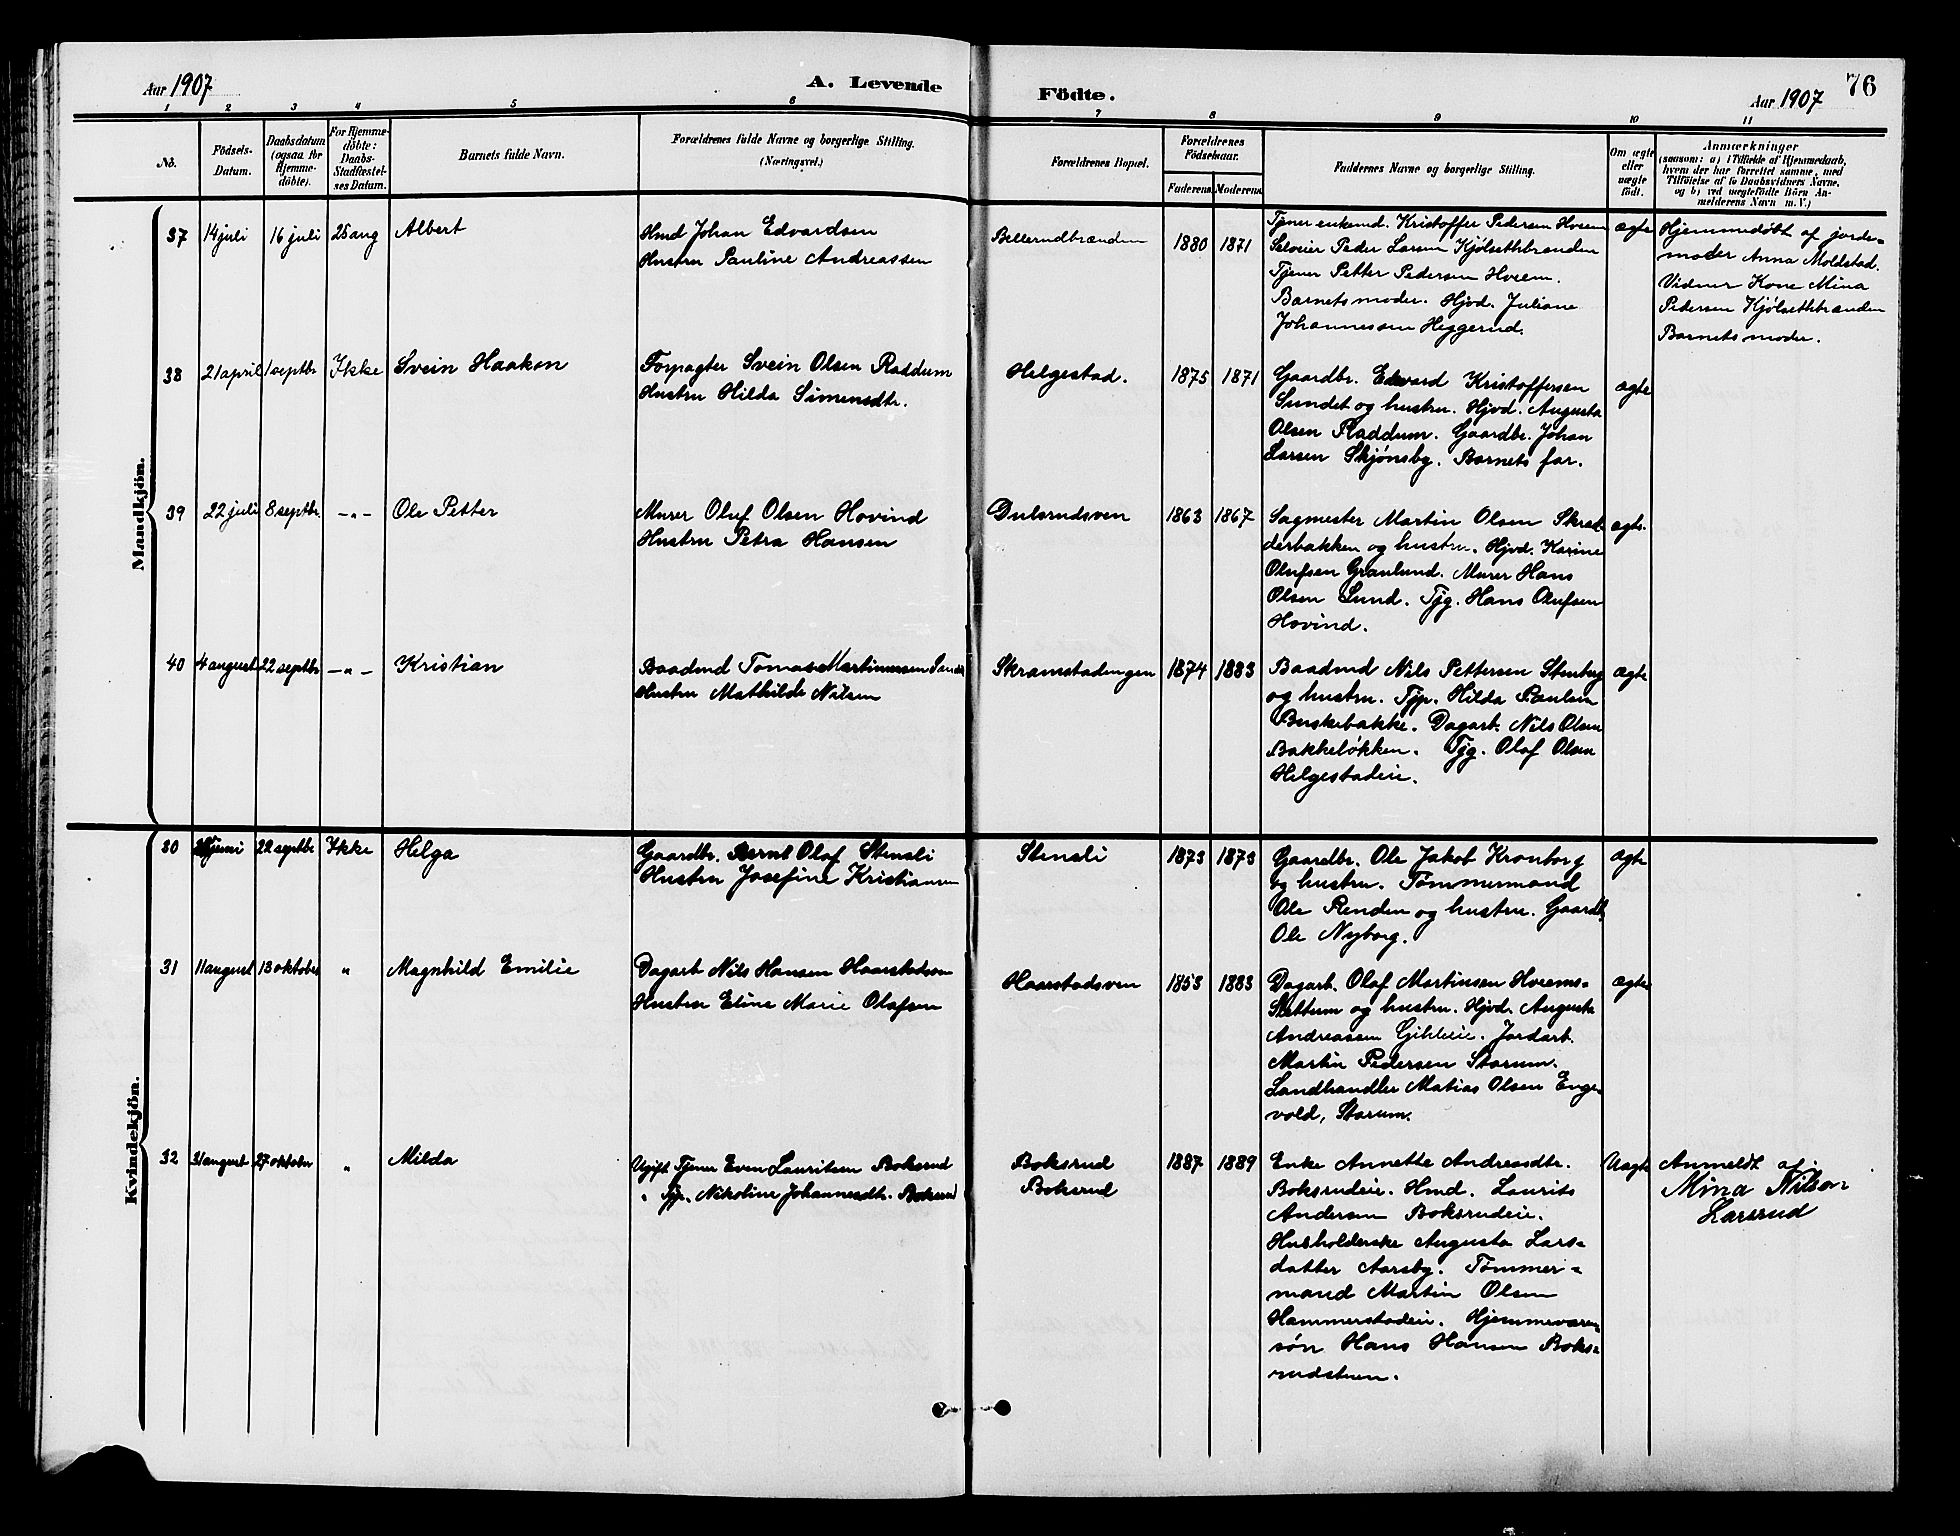 Aar 1907
A. Levende
Födte.
Aar 1907
76
1 2 3 4 5 6 7 8 9 10 11
No.
Födsels-
Datum.
Daabsdatum
(ogsaa for
Hjemme-
döbte).
For Hjemme-
döbte:
Daabs-
Stadfæstel-
ses Datum.
Barnets fulde Navn.
Forældrenes fulde Navne og borgerlige Stilling.
(Næringsvei.)
Forældrenes Bopæl.
Forældrenes
Födselsaar.
Faderens. Moderens.
Faddernes Navne og borgerlige Stilling.
Om ægte
eller
uægte
födt.
Anmærkninger
(saasom: a) i Tilfælde af Hjemmedaab,
hvem der har forrettet samme, med
Tilföielse af to Daabsvidners Navne,
og b) ved uægtefödte Börn An-
melderens Navn m. V.)
Mandkjön.
37 14 juli 16 juli 25 aug Albert
Hmd Johan Edvardsen
Hustru Pauline Andreassen
Bellerudbrænden
1880 1871
Tjener enkemd. Kristoffer Pedersen Hveem
Selveier Peder Larsen Kjølsethbrænden
Tjener Petter Pedersen Hveem.
Barnets moder. Hjvd. Juliane
Johannessen Heggerud.
ægte
Hjemmedøbt af jorde-
moder Anna Moldstad.
Vidner Kone Mina
Pedersen Kjølsethbrænden
Barnets moder.
38 21 april 1 septbr Ikke Svein Haakon
Forpagter Svein Olsen Raddum
Hustru Hilda Simensdtr.
Helgestad.
1875 1871
Gaardbr. Edvard Kristoffersen
Sundet og hustru. Hjvd. Augusta
Olsen Raddum. Gaardbr. Johan
Larsen Skjønsby. Barnets far.
ægte
39 22 juli 8 septbr. -"- Ole Petter
Murer Oluf Olsen Hovind
Hustru Petra Hansen
Dulsrudsven
1863 1867
Sagmester Martin Olsen Skræd-
derbakken og hustru. Hjvd. Karine
Olufsen Granlund. Murer Hans
Olsen Lund. Tjg. Hans Olufsen
Hovind.
ægte
40 4 august 22 septbr -"- Kristian
Baadmd Tomas Martinussen
Hustru Mathilde Nilsen
Skramstadengen
1874 1883
Baadmd Nils Pettersen Stenberg
og hustru. Tjp. Hilda Paulsen
Buskebakke. Dagarb. Nils Olsen
Bakkeløkken. Tjg. Olaf Olsen
Helgestadeie.
ægte
Kvindekjön.
30 juni 22 septbr Ikke Helga
Gaardbr. Bernt Olaf Stensli
Hustru Josefine Kristiansen
Stensli
1873 1873
Gaardbr. Ole Jakob Kronborg
og hustru. Tømmermand
Ole Renden og hustru. Gaardb.
Ole Nyborg.
ægte
31 11 august 13 oktober " Magnhild Emilie
Dagarb Nils Hansen Haarstadsven
Hustru Eline Marie Olafsen
Haarstadsven
1853 1883
Dagarb. Olaf Martinsen Hveems-
Slettum og hustru. Hjvd. Augusta
Andreassen Gihleeie. Jordarb.
Martin Pedersen Starum.
Landhandler Matias Olsen Enge-
vold, Starum.
ægte
32 31 august 27 oktober " Milda
Ugift Tjener Even Lauritsen Boksrud
" Tjp. Nikoline Johannesdtr. Boksrud
Boksrud
Boksrud
1887 1889
Enke Annette Andreasdtr.
Boksrudeie. Hmd. Laurits
Andersen Boksrudeie.
Husholderske Augusta Lars-
datter Aarsby. Tømmer-
mand Martin Olsen
Hammerstadeie. Hjemmeværen.
søn Hans Hansen Boks-
rudstuen.
Uægte
Anmeldt af:
Mina Nilsen
Larsrud